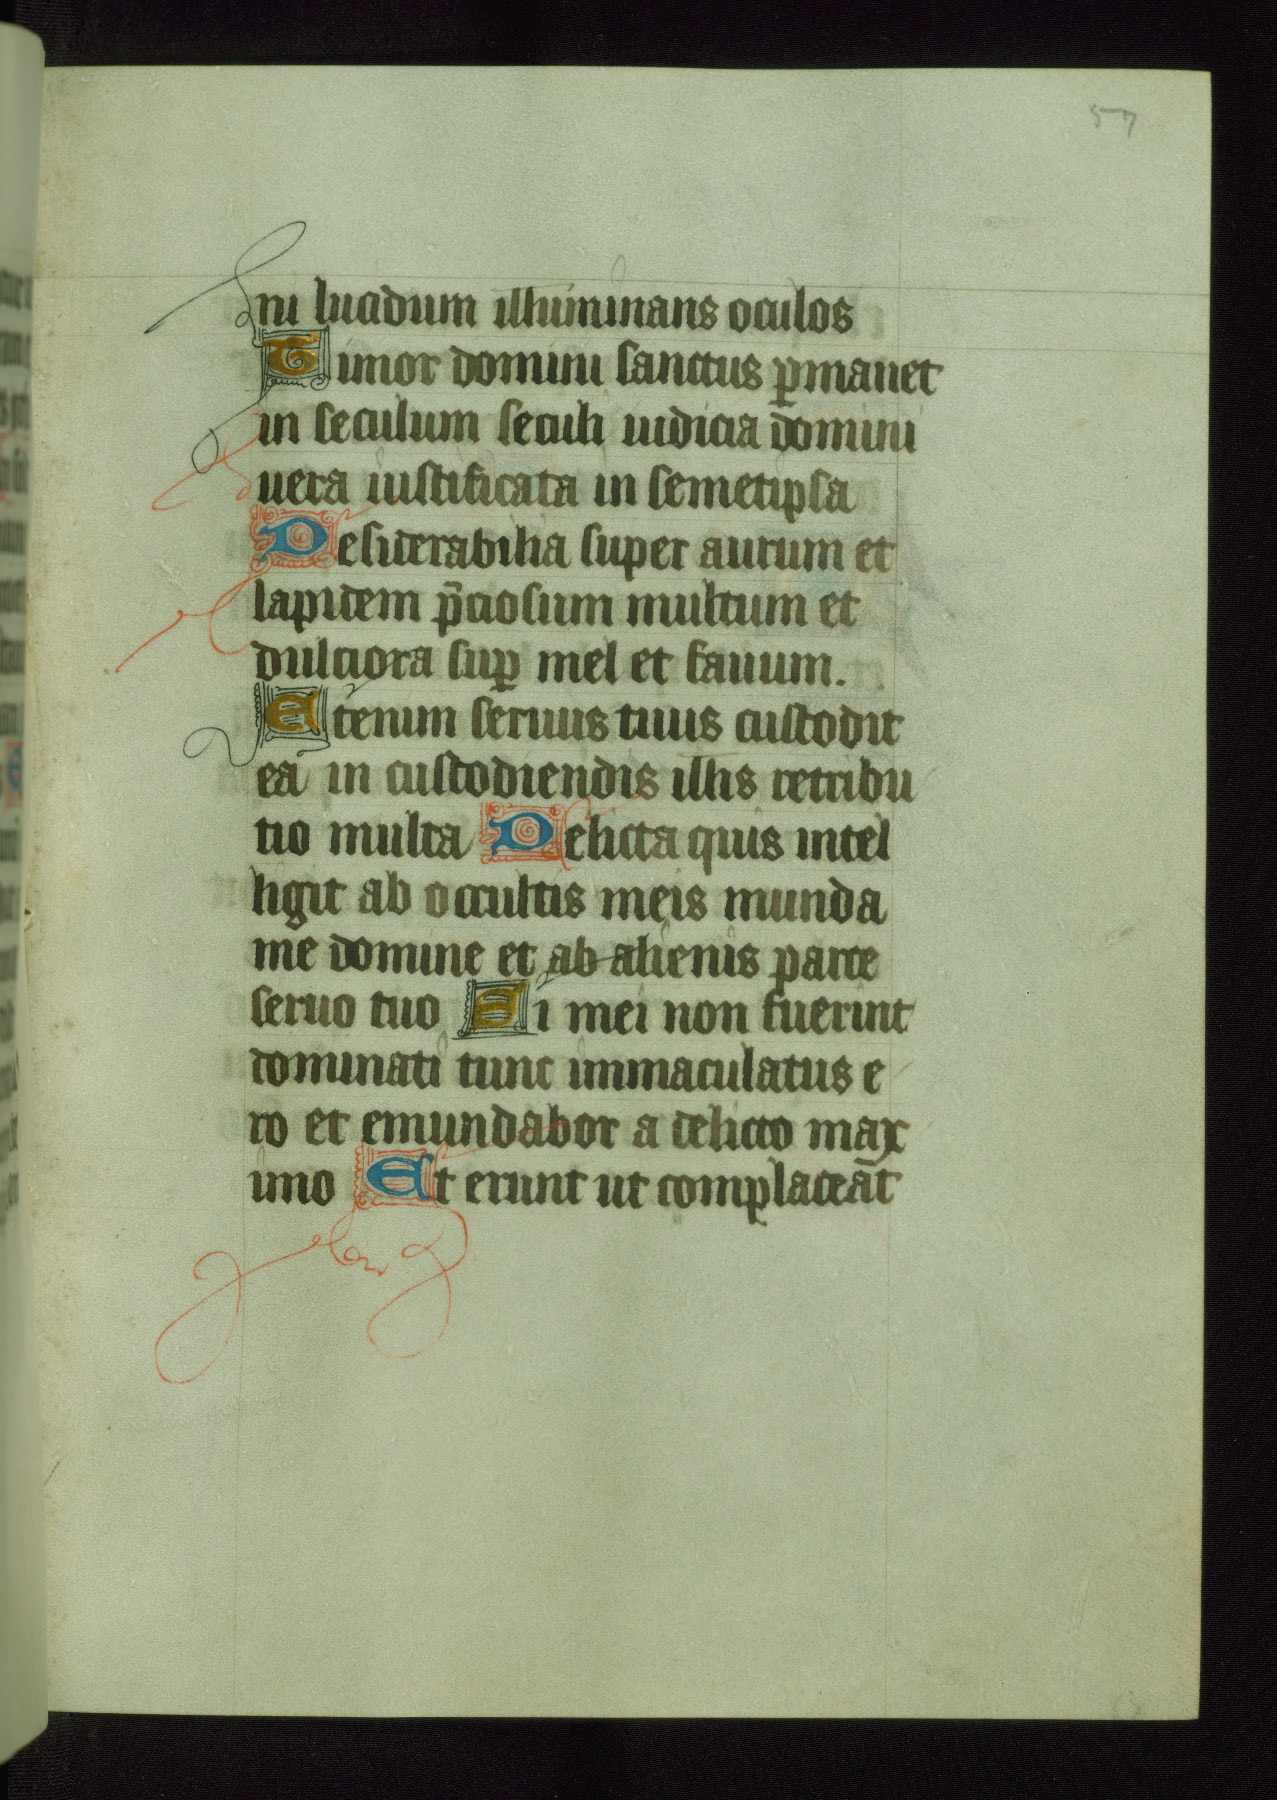 57
ni lucidum illuminans oculos
Timor domini sanctus p̲manet
in seculum seculi iudicia domini
uera iustificata in semetipsa
Desiderabilia super aurum et
lapidem p̄ciosum multum et
dulciora sup̲ mel et fauum.
Etenim seruus tuus custodit
ea in custodiendis illis retribu
tio multa Delicta quis intel
ligit ab occultis meis munda
me domine et ab alienis parce
seruo tuo Si mei non fuerint
dominati tunc immaculatus e
ro et emundabor a delicto max
imo Et erunt ut complaceāt